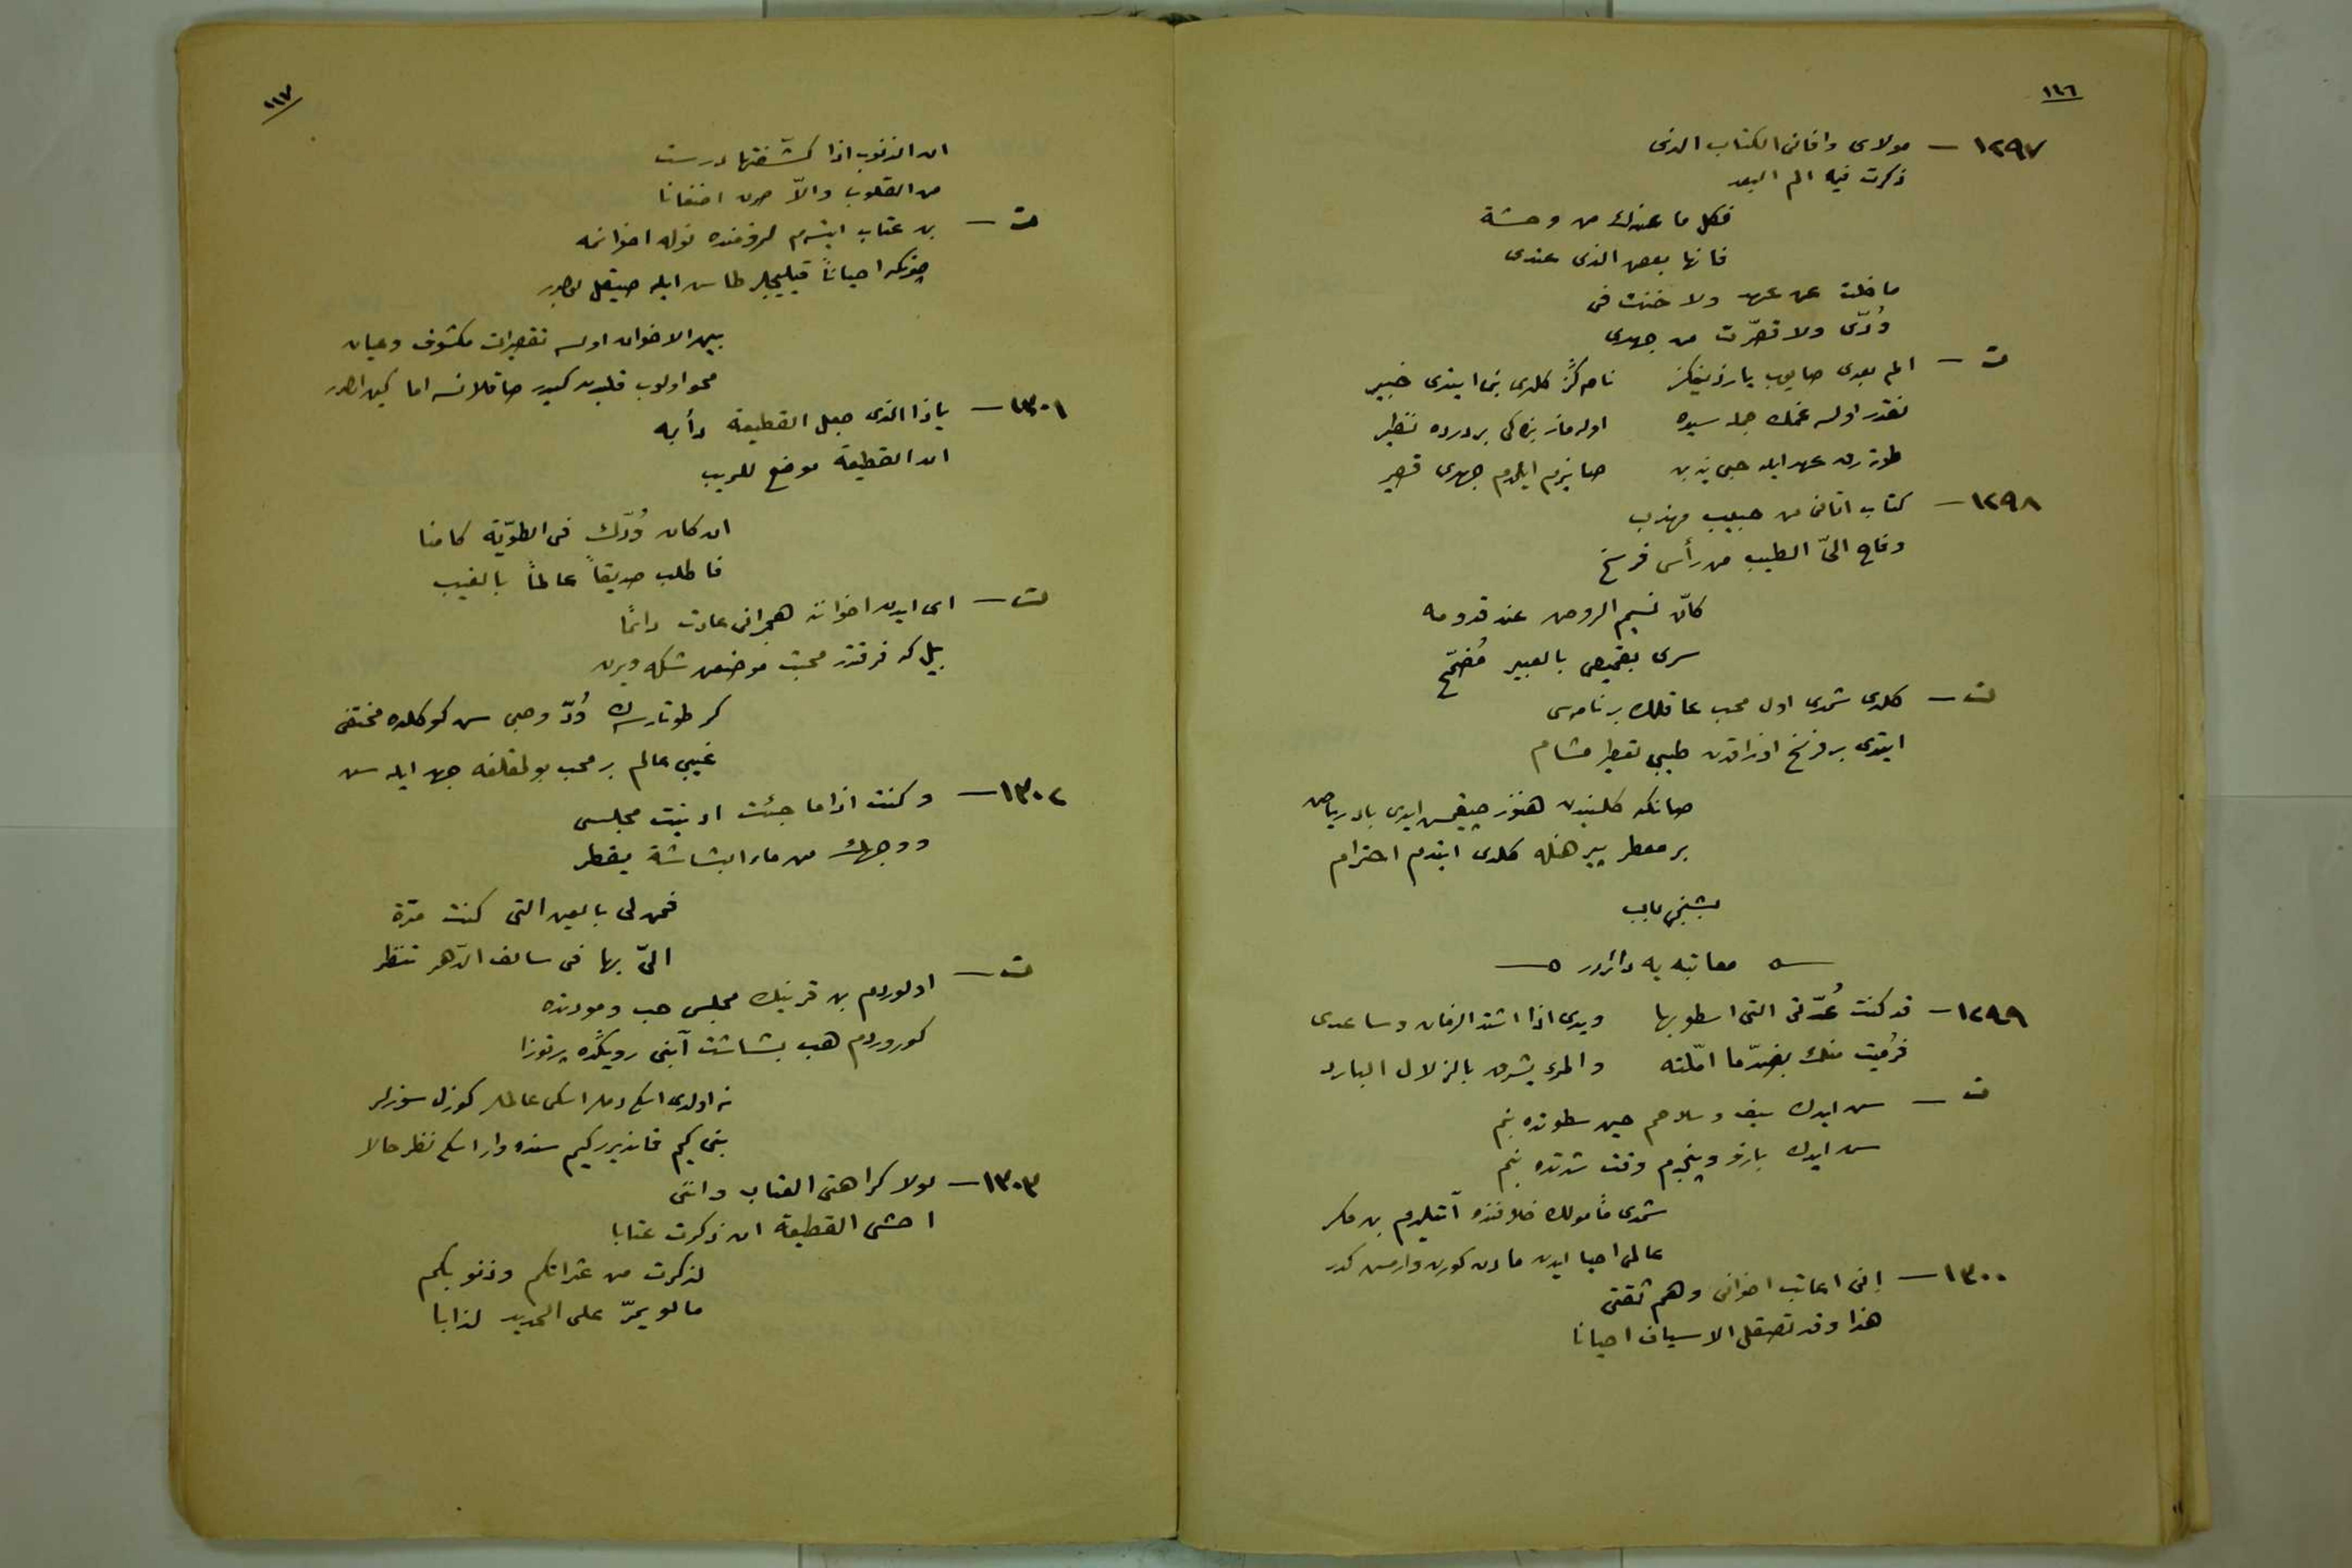 ١١٦
١٢٩٧ — مولاى وافانى الكتاب الذى
ذكرت فيه الم البعد
فكل ما عندك من وحشة
فانها بعض الذى عندى
ما حلت عن عهد ولا خنت فى
وُدّى ولا قصّرت من جهدى
ت — الم بعدى صايوب يازديغكز نامه‌كز كلدى بنى ايتدى خبير
نقدر اولسه غمك جمله سيده اوله‌ماز بزه‌كى بر درده نظير
طوتارن عهد ايله حبى يزبن صانيزم ايلدم جهدى قصير
١٢٩٨ — كتاب اتانى من حبيب مهذب
وفاح الىّ الطيب من رأس فرسخ
كأن نسيم الروض عند قدومه
سرى بقميص بالعبير مُضمّخ
ت — كلدى شمدى اول محب عاقلك برنامه‌سى
ايتدى بر فرسخ اوزاقدن طيبى تعطير مشام
صانكه كلشيندن هنوز چيقمش ايدى باد رياض
بر معطر پيرهنله كلدى ايتدم احترام
بشنجى باب
معاتبه يه دائردر
١٢٩٩ — قد كنت عُدّتى التى اسطو بها ويدى اذا اشتد الزمان وساعدى
فرُميت منك بضدّ ما امّلته والمرء يشرق بالزلال البارد
ت — سن ايدك سيف وسلاحم حين سطوتده بنم
سن ايدك بازو وپنجه‌م وقت شدتده بنم
شمدى مأمولك خلافنده آتيلدم بن مكر
عالمى احيا ايدن مادن كورن وارمش كدر
١٣٠٠ — انى اعاتب اخوانى وهم ثقتى
هذا وقد تصقل الاسياف احيانا
١١٧
ان الذنوب اذا كشّفتها درست
من القلوب والّا صرن اضغانا
ت — بن عتاب ايتدم طرفمده نوله اخوانمه
چونكه احياناً قيليچلر طاس ايله صيقل بولور
بين الاخوان اولسه تقصيرات مكشوف وعيان
محو اولوب قلبدن كيدر صاقلانسه اما كين اولور
١٣٠١ — ياذا الذى جعل القطيعة دأبه
ان القطيعة موضع للريب
ان كان وُدّك فى الطويّة كامنا
فاطلب صديقاً عالماً بالغيب
ت — اى ايدن اخوانه هجرانى عادت دائماً
بيل كه فرقتدر محبت موضعن شكه ويرن
كر طوتارسه‌ك وُدّ وحبى سن كوكلده مختفى
غيبى عالم بر محب بولمقلغه جهد ايله سن
١٣٠٢ — وكنت اذا ما جئت ادنيت مجلسى
ووجهك من ماء البشاشة يقطر
فمن لى بالعين التى كنت مرّة
الىّ بها فى سالف الدّهر تنظر
ت — اولوردم بن قرينك مجلس حب ومودتده
كوروردم هب بشاشت آبنى رويكده پرتوزا
نه اولدى اسكى دملر اسكى عالملر كوزل سوزلر
بنى كيم قانديرر كيم سنده وار اسكى نظر حالا
١٣٠٣ — لولا كراهتى العتاب واننى
اخشى القطيعة ان ذكرت عتابا
لذكرت من عثراتكم وذنوبكم
ما لو يمرّ على الحديد لذابا